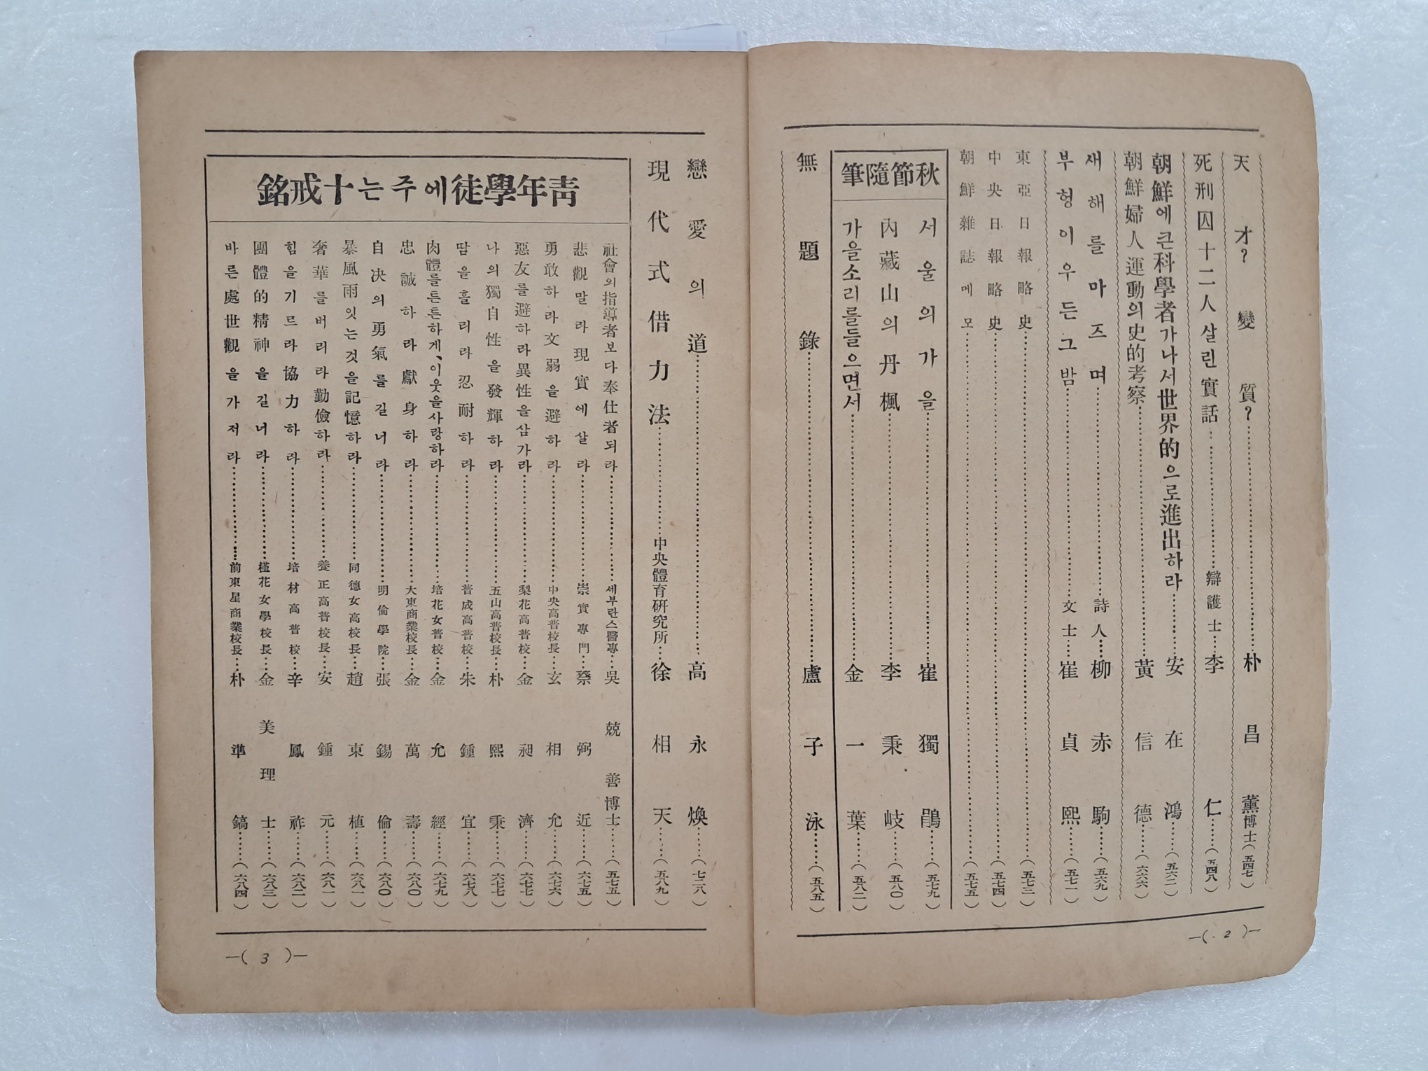 天才? 變質?……朴昌薰博士……(五四七)
死刑囚十二人살린實話……辯護士…李仁……(五四八)
朝鮮에큰科學者가나서世界的으로進出하라……安在鴻……(五六二)
朝鮮婦人運動의史的考察……黃信德……(六六六)
새해를마즈며……詩人…柳赤駒……(五六九)
부헝이우든그밤……文士…崔貞熙……(五七一)
東亞日報略史……(五七三)
中央日報略史……(五七四)
朝鮮雜誌메모……(五七五)
秋節隨筆
서울의가을……崔獨鵑……(五七九)
內藏山의丹楓……李秉岐……(五八〇)
가을소리를들으면서……金一葉……(五八二)
無題錄……盧子泳……(五八五)
—( 2 )—
戀愛의道……高永煥……(七二八)
現代式借力法……中央體育硏究所…徐相天……(五八九)
靑年學徒에주는十戒銘
社會의指導者보다奉仕者되라……세부란스醫專…吳兢善博士……(五七五)
悲觀말라現實에살라……崇實專門…蔡弼近……(六七五)
勇敢하라文弱을避하라……中央高普校長…玄相允……(六七六)
惡友를避하라異性을삼가라……梨花高普校…金昶濟……(六七七)
나의獨自性을發輝하라……五山高普校長…朴熙秉……(六七七)
땀을흘려라忍耐하라……普成高普校…朱鍾宜……(六七八)
肉體를튼튼하게、이웃을사랑하라……培花女普校…金允經……(六七九)
忠誠하라獻身하라……大東商業校長…金萬壽……(六八〇)
自決의勇氣를길너라……明倫學院…張錫倫……(六八〇)
暴風雨잇는것을記憶하라……同德女高校長…趙東植……(六八一)
奢華를버리라勤儉하라……養正高普校長…安鍾元……(六八一)
힘을기르라協力하라……培材高普校…辛鳳祚……(六八二)
團體的精神을길너라……槿花女學校長…金美理士……(六八三)
바른處世觀을가저라……前東星商業校長…朴準鎬……(六八四)
—( 3 )—